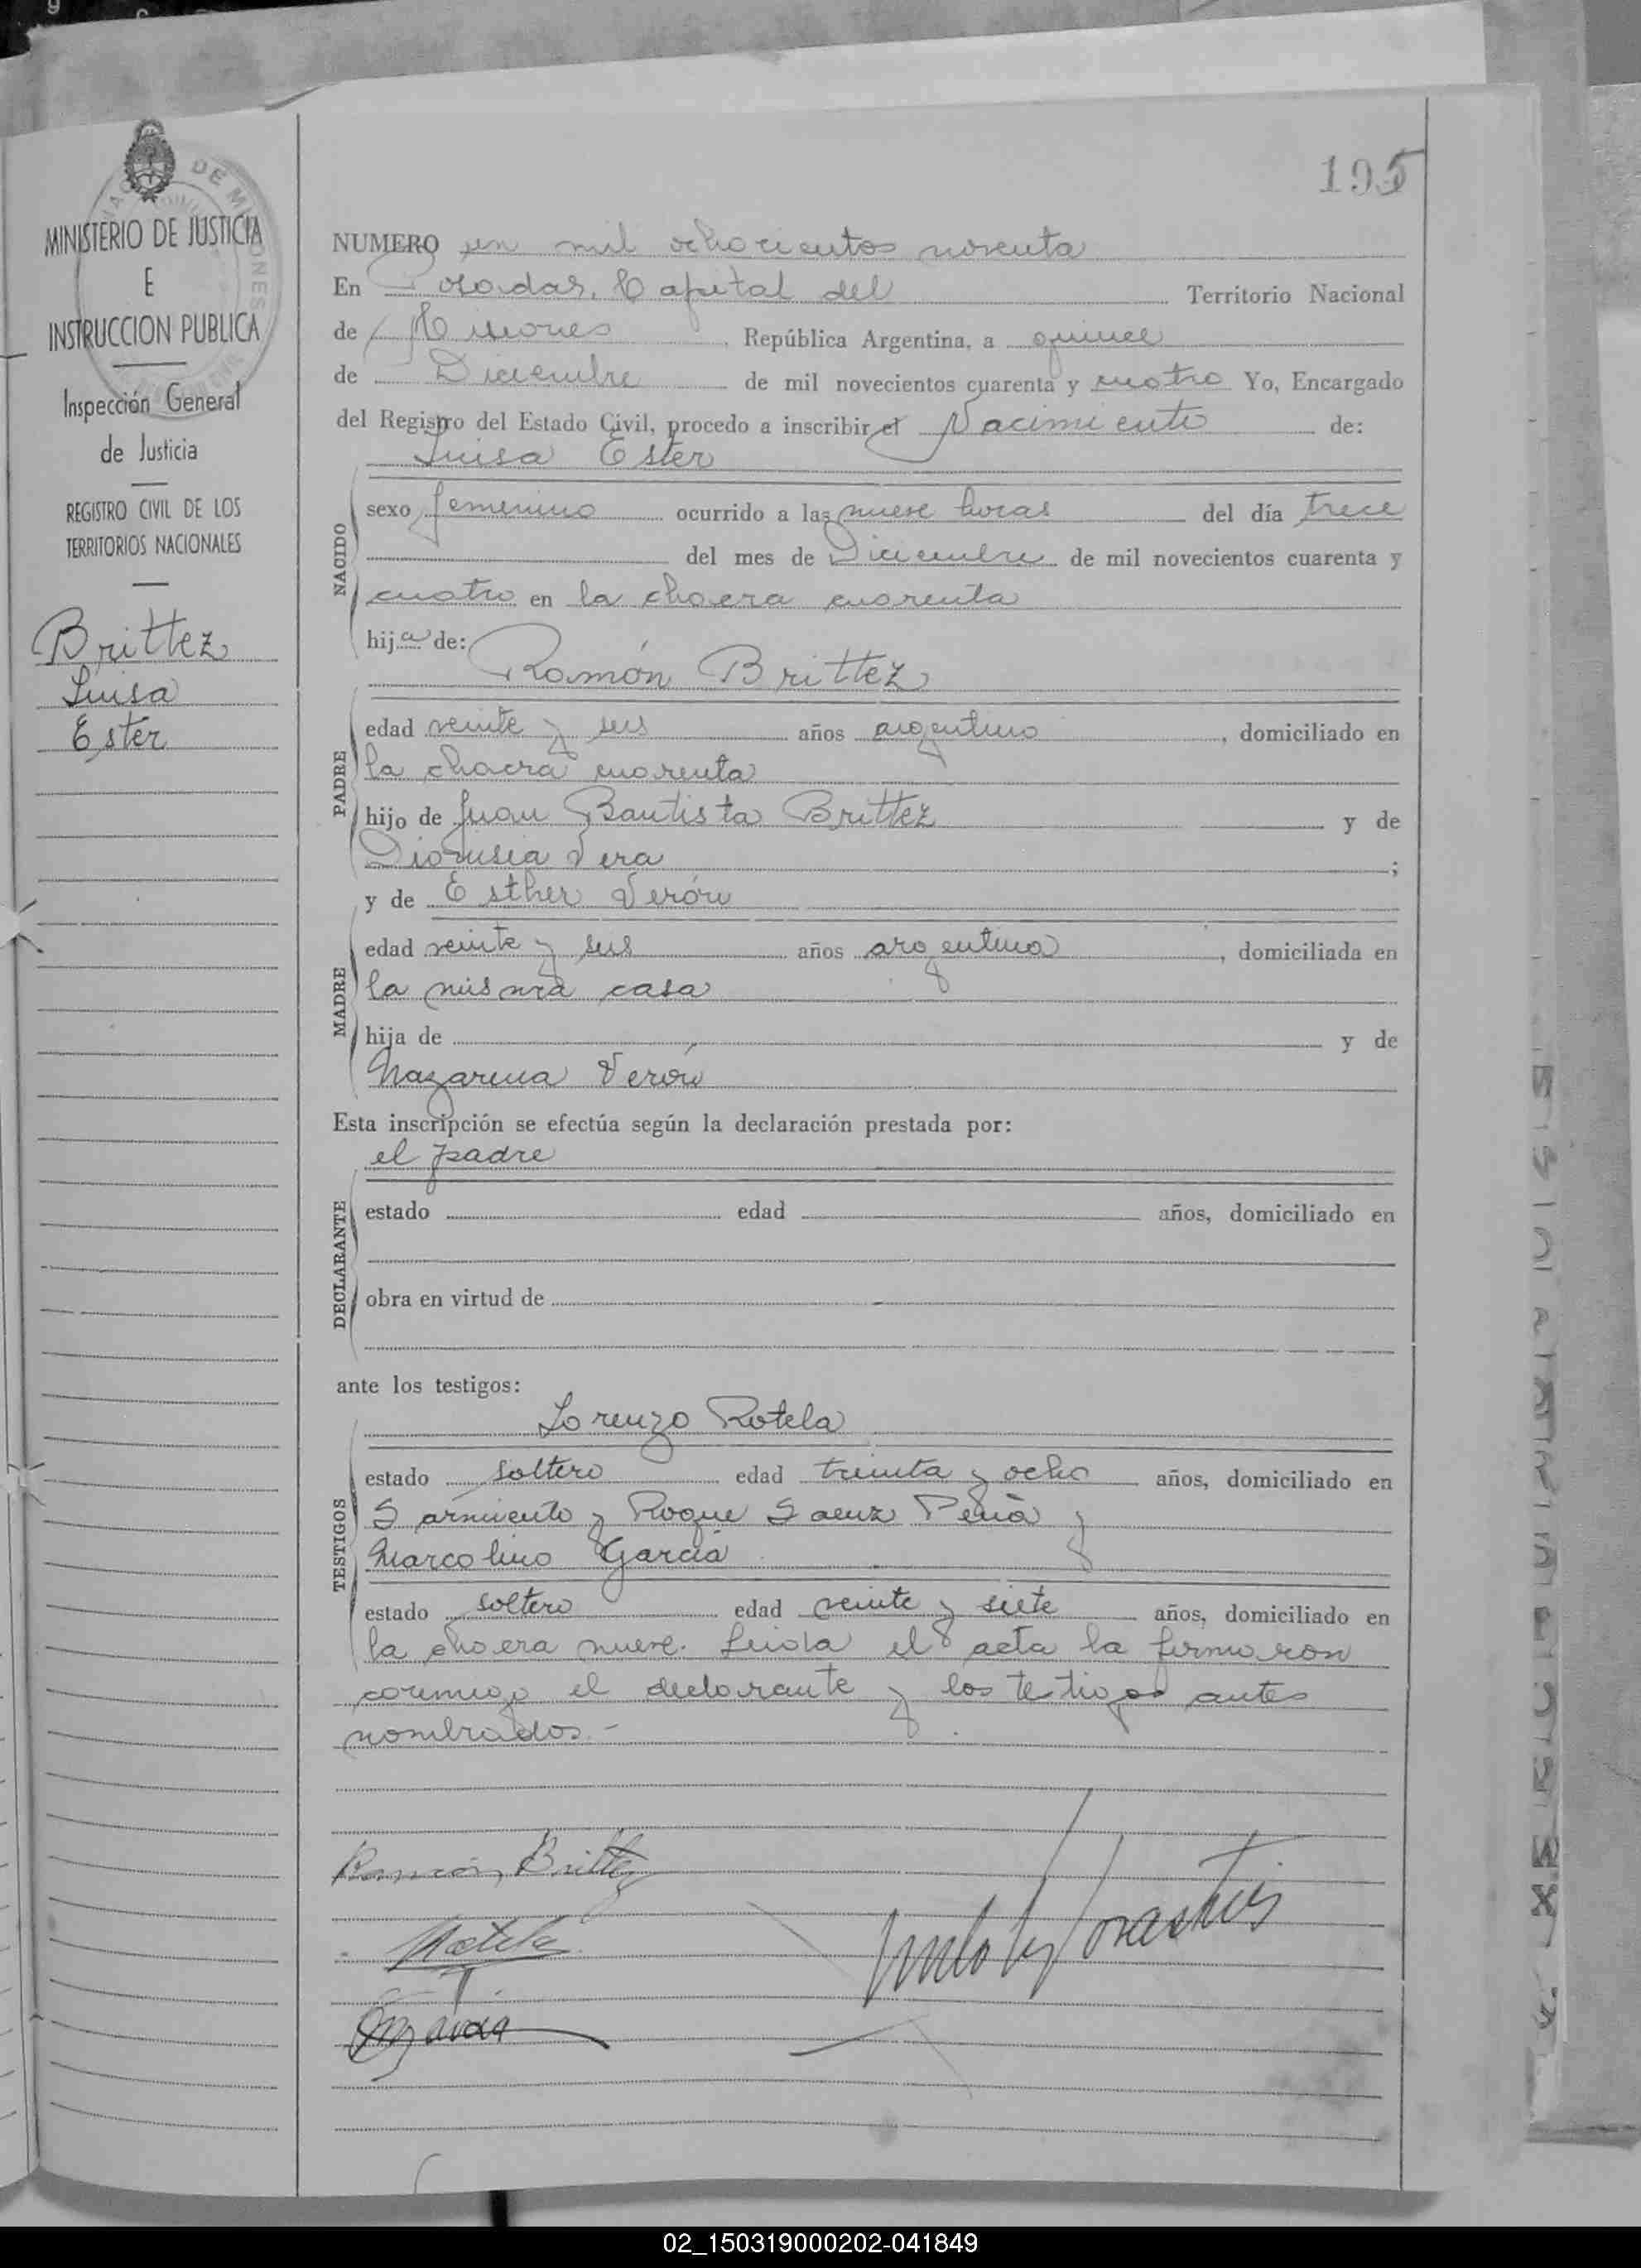 195
MINISTERIO DE JUSTICIA
E
INSTRUCCION PUBLICA
Inspección General
de Justicia
REGISTRO CIVIL DE LOS
TERRITORIOS NACIONALES
Brittez
Luisa
Ester
NUMERO un mil ochocientos noventa
En Posadas, Capital del Territorio Nacional
de Misiones, República Argentina, a quince
de Diciembre de mil novecientos cuarenta y cuatro Yo, Encargado
del Registro del Estado Civil, procedo a inscribir el Nacimiento de:
Luisa Ester
NACIDO
sexo femenino ocurrido a las nueve horas del día trece
del mes de Diciembre de mil novecientos cuarenta y
cuatro en la chacra cuarenta
hija de:
Ramón Brittez
PADRE
edad veinte y seis años argentino, domiciliado en
la chacra cuarenta
hijo de Juan Bautista Brittez y de
Dionisia Vera;
y de Esther Verón
MADRE
edad veinte y seis años argentina, domiciliada en
la misma casa
hija de y de
Nazarena Verón
Esta inscripción se efectúa según la declaración prestada por:
el padre
DECLARANTE
estado edad años, domiciliado en
obra en virtud de
ante los testigos:
Lorenzo Rotela
TESTIGOS
estado soltero edad treinta y ocho años, domiciliado en
Sarmiento y Roque Saenz Peña y
Marcolino García
estado soltero edad veinte y siete años, domiciliado en
la chacra nueve. Leida el acta la firmaron
conmigo el declarante y los testigos antes
nombrados.-
Ramón Brittez
Rotela
García
02_150319000202-041849